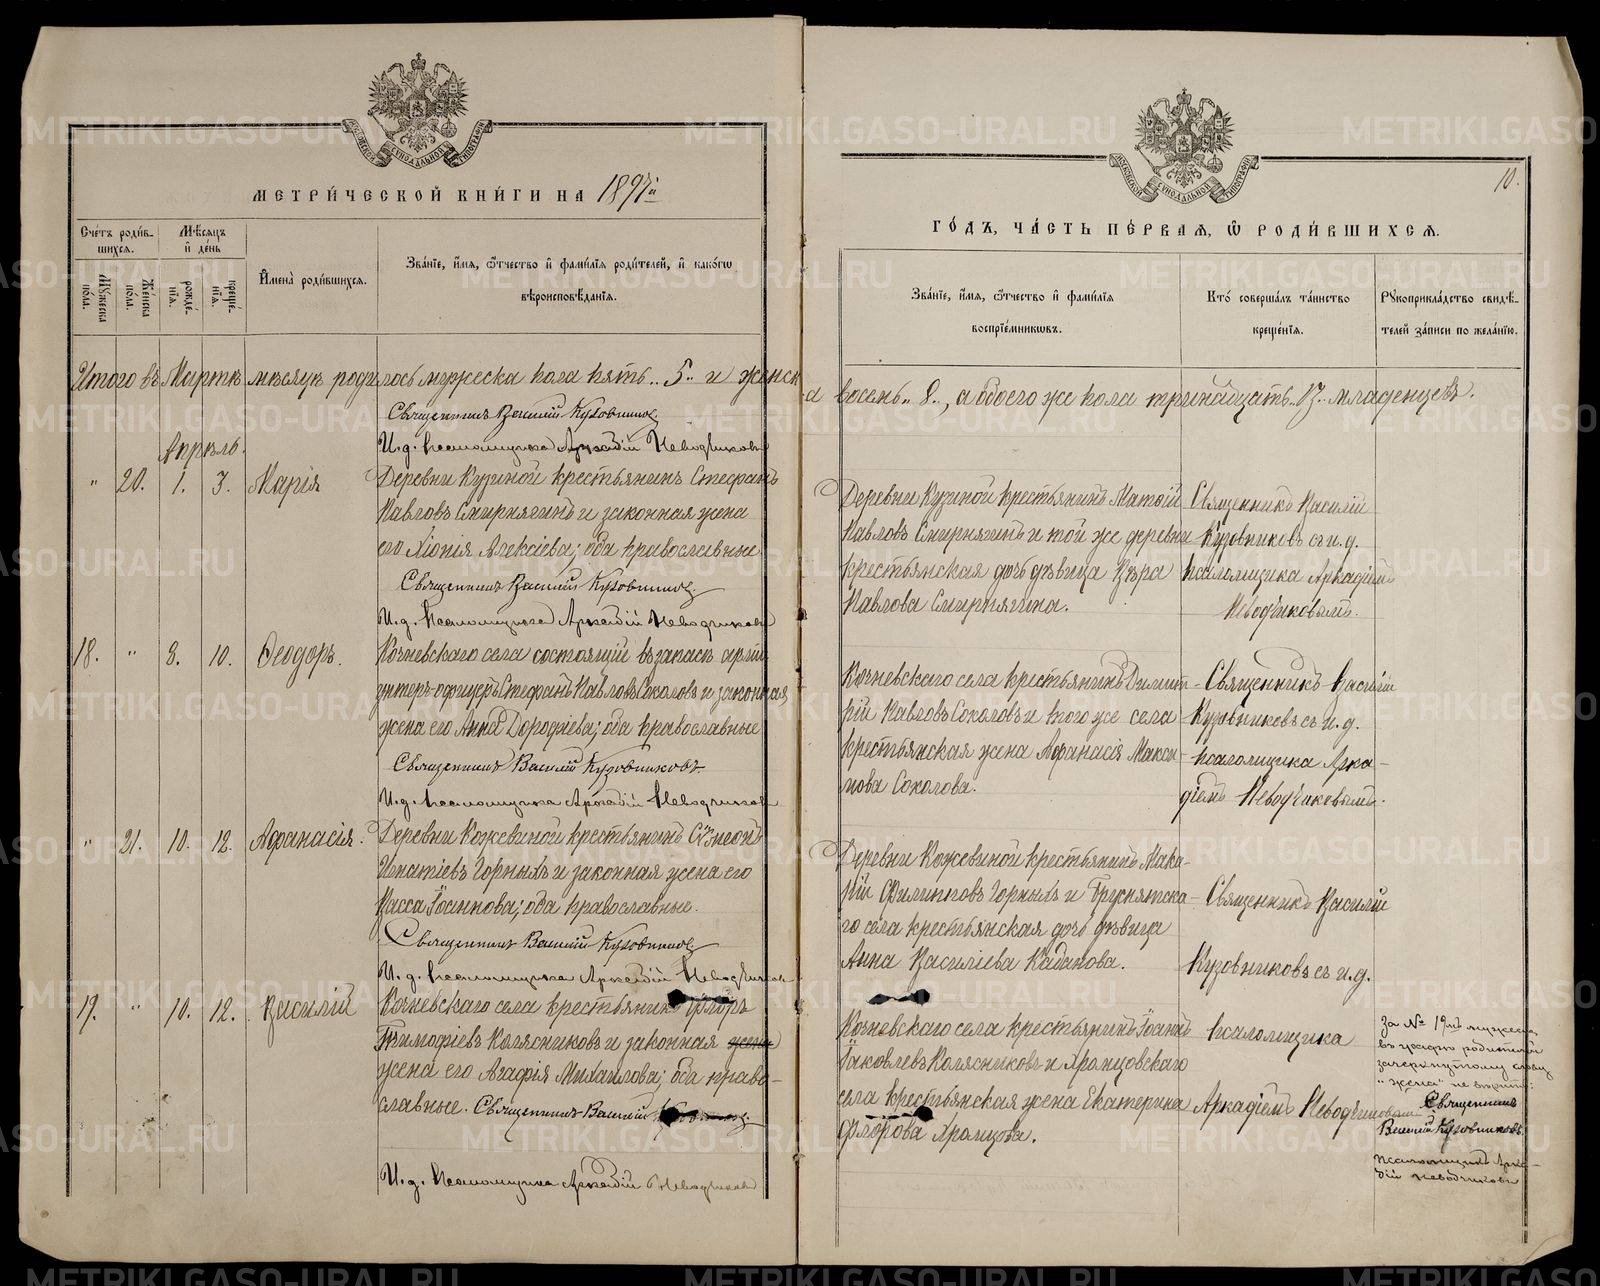 МОСКОВСКОЙ СѴНОДАЛЬНОЙ ТИПОГРАФІИ
МЕТРИ́ЧЕСКОЙ КНИ́ГИ НА 1897й
Сче́тъ роди́вшихсѧ.
Мѣсѧцъ и҆ де́нь
И҆мена̀ роди́вшихсѧ.
Зва́нїе, и҆́мѧ, ѻ҆́тчество и҆ фамі́лїѧ роди́телей, и҆ како́гѡ
вѣроисповѣ́данїѧ.
Мꙋжеска по́ла.
Же́нска по́ла.
рожде́нїѧ.
креще́нїѧ.
Итого въ Мартѣ мѣсяцѣ родилось мужеска пола пять „5„ и женск
Священникъ Василій Кузовниковъ
И.д. Псаломщика Аркадій Неводчиковъ
Апрѣль.
„ 20. 1. 3. Марія
Деревни Кузиной крестьянинъ Стефанъ
Павловъ Смирнягинъ и законная жена
его Хіонія Алексіева; оба православные
Священникъ Василій Кузовниковъ
И.д. Псаломщика Аркадій Неводчиковъ
18. „ 8. 10. Ѳеодоръ.
Кочневскаго села состоящій въ запасѣ арміи
унтеръ-офицеръ Стефанъ Павловъ Соколовъ и законная
жена его Анна Дорофіева; оба православные
Священникъ Василій Кузовниковъ.
И.д. Псаломщика Аркадій Неводчиковъ
„ 21. 10. 12. Афанасія.
Деревни Кожевиной крестьянинъ Сѵмеонъ
Игнатіевъ Горныхъ и законная жена его
Васса Іоаннова; оба православные.
Священникъ Василій Кузовниковъ
И.д. Псаломщика Аркадій Неводчиковъ
19. „ 10. 12. Василій
Кочневскаго села крестьянинъ Флоръ
Тимофіевъ Колясниковъ и законная жена
жена его Агафія Михаилова; оба право-
славные. Священникъ Василій Кузовниковъ
И.д. Псаломщика Аркадій Неводчиковъ
МОСКОВСКОЙ СѴНОДАЛЬНОЙ ТИПОГРАФІИ
10.
ГО́ДЪ, ЧА́СТЬ ПЕ́РВАѦ, Ѡ҆ РОДИ́ВШИХСѦ.
Зва́нїе, и҆́мѧ, ѻ҆́тчество и҆ фамі́лїѧ
воспрїе́мникѡвъ.
Кто̀ соверша́лъ та́инство
креще́нїѧ.
Рꙋкоприкла́дство свидѣ́-
телей за́писи по жела́нїю.
а восемь „8„, а обоего же пола тринадцать „13„ младенцевъ.
Деревни Кузиной крестьянинъ Матѳій
Павловъ Смирнягинъ и той же деревни
крестьянская дочь дѣвица Вѣра
Павлова Смирнягина.
Священникъ Василій
Кузовниковъ съ и.д.
псаломщика Аркадіемъ
Неводчиковымъ.
Кочневскаго села крестьянинъ Димит-
рій Павловъ Соколовъ и того же села
крестьянская жена Афанасія Макси-
мова Соколова.
Священникъ Василій
Кузовниковъ съ и.д.
псаломщика Арка-
діемъ Неводчиковымъ.
Деревни Кожевиной крестьянинъ Мака-
рій Филипповъ Горныхъ и Грязнятска-
го села крестьянская дочь дѣвица
Анна Василіева Кадакова.
Священникъ Василій
Кузовниковъ съ и.д.
Кочневскаго села крестьянинъ Іоаннъ
Іаковлевъ Колясниковъ и Храмцовскаго
села крестьянская жена Екатерина
Флорова Храмцова.
псаломщика
Аркадіемъ Неводчиковымъ
За № 19мъ мужеск.
въ графѣ родителей
зачеркнутому слову
„жена“ не вѣрить:
Священникъ
Василій Кузовниковъ.
псаломщикъ Арка-
дій Неводчиковъ
METRIKI.GASO-URAL.RU